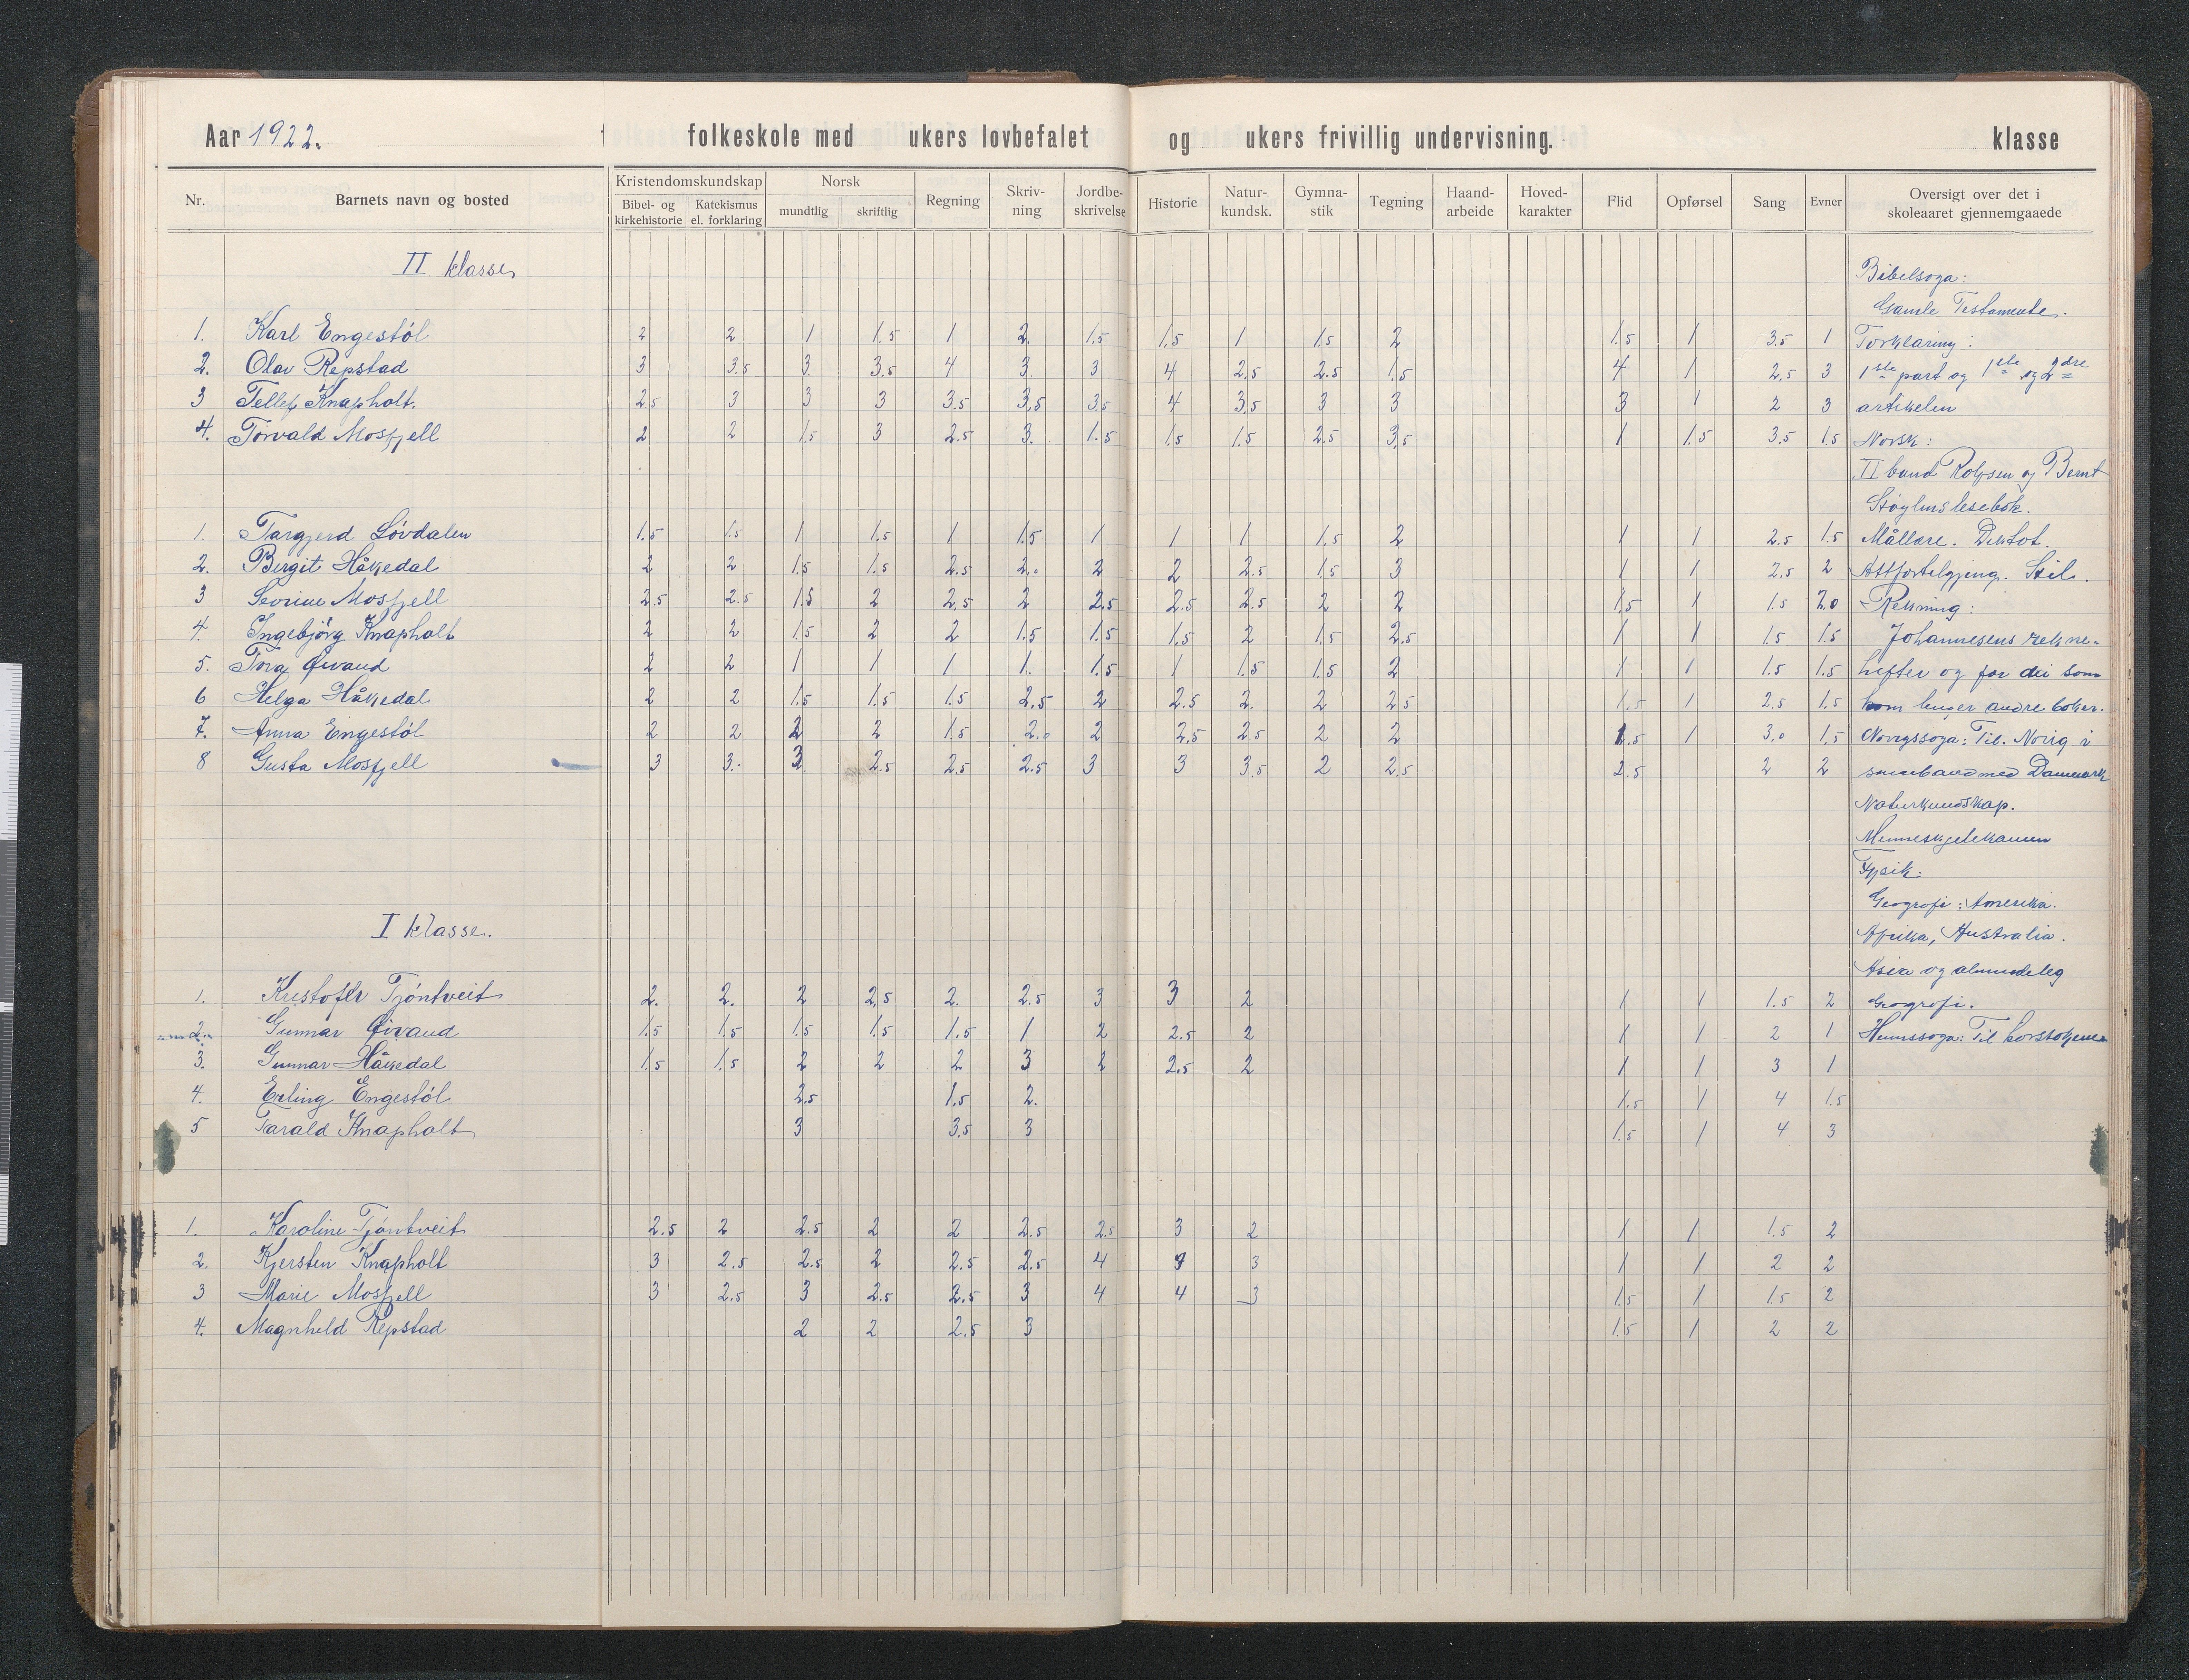 Aar 1922. folkeskole med ukers lovbefalet og ukers frivillig undervisning. klasse
Nr. Barnets navn og bosted Kristendomskundskap Bibel- og kirkehistorie Katekismus el. forklaring Norsk mundtlig skriftlig Regning Skriv-ning Jordbe-skrivelse Historie Natur-kundsk. Gymna-stik Tegning Haand-arbeide Hoved-karakter Flid Opførsel Sang Evner Oversigt over det i skoleaaret gjennemgaaede
II klasse
Bibelsoga:
Gamle Testamente.
1. Karl Engestøl 2 2 1 1.5 1 2. 1.5 1.5 1 1.5 2 1.5 1 3.5 1 Forklaring:
2. Olav Repstad 3 3.5 3 3.5 4 3 3 4 2.5 2.5 1.5 4 1 2.5 3 1ste part og 1ste og 2dre
3 Tellef Knapholt. 2.5 3 3 3 3.5 3.5 3.5 4 3.5 3 3 3 1 2 3 artikelen
4. Torvald Mosfjell 2 2 1.5 3 2.5 3. 1.5 1.5 1.5 2.5 3.5 1 1.5 3.5 1.5 Norsk:
II band Rolfsen og Bernt
Støylns lesebok.
1. Targjerd Løvdalen 1.5 1.5 1 1.5 1 1.5 1 1 1 1.5 2 1 1 2.5 1.5 Mållære. Diktot.
2. Bergit Håkedal 2 2 1.5 1.5 2.5 2.0 2 2 2.5 1.5 3 1 1 2.5 2 Attforteljing. Stil.
3 Severine Mosfjell 2.5 2.5 1.5 2 2.5 2 2.5 2.5 2.5 2 2 1.5 1 1.5 2.0 Rekning:
4. Ingebjørg Knapholt 2 2 1.5 2 2 1.5 1.5 1.5 2 1.5 2.5 1 1 1.5 1.5 Johannesens rekne-
5. Tora Øivand 2 2 1 1 1 1. 1.5 1 1.5 1.5 2 1 1 1.5 1.5 hefter og for dei som
6 Helga Håkedal 2 2 1.5 1.5 1.5 2.5 2 2.5 2. 2 2.5 1.5 1 2.5 1.5 kom lenger andre bøker.
7. Anna Engestøl 2 2 2 2 1.5 2.0 2 2.5 2.5 2 2 1.5 1 3.0 1.5 Norigssoga: Til Norig i
8 Gusta Mosfjell 3 3. 3 2.5 2.5 2.5 3 3 3.5 2 2.5 2.5 2 2 samband med Danmark
Naturkundskap.
Menneskjelekamen
Fysik:
Geografi: Amerika.
I klasse.
Afrika, Australia.
Asia og almindeleg
1. Kristofer Tjøntveit 2. 2. 2 2.5 2. 2.5 3 3 2 1 1 1.5 2 Geografi.
2. Gunnar Øivand 1.5 1.5 1.5 1.5 1.5 1 2 2.5 2 1 1 2 1 Heimssoga: Til korstogene
3. Gunnar Håkedal 1.5 1.5 2 2 2 3 2 2.5 2 1 1 3 1
4. Erling Engestøl 2.5 1.5 2. 1.5 1 4 1.5
5 Tarald Knapholt 3 3.5 3 1.5 1 4 3
1. Karoline Tjøntveit 2.5 2 2.5 2 2 2.5 2.5 3 2 1 1 1.5 2
2. Kjersten Knapholt 3 2.5 2.5 2 2.5 2.5 4 3 1 1 2 2
3 Marie Mosfjell 3 2.5 3 2.5 2.5 3 4 4 3 1.5 1 1.5 2
4. Magnhild Repstad 2 2 2.5 3 1.5 1 2 2